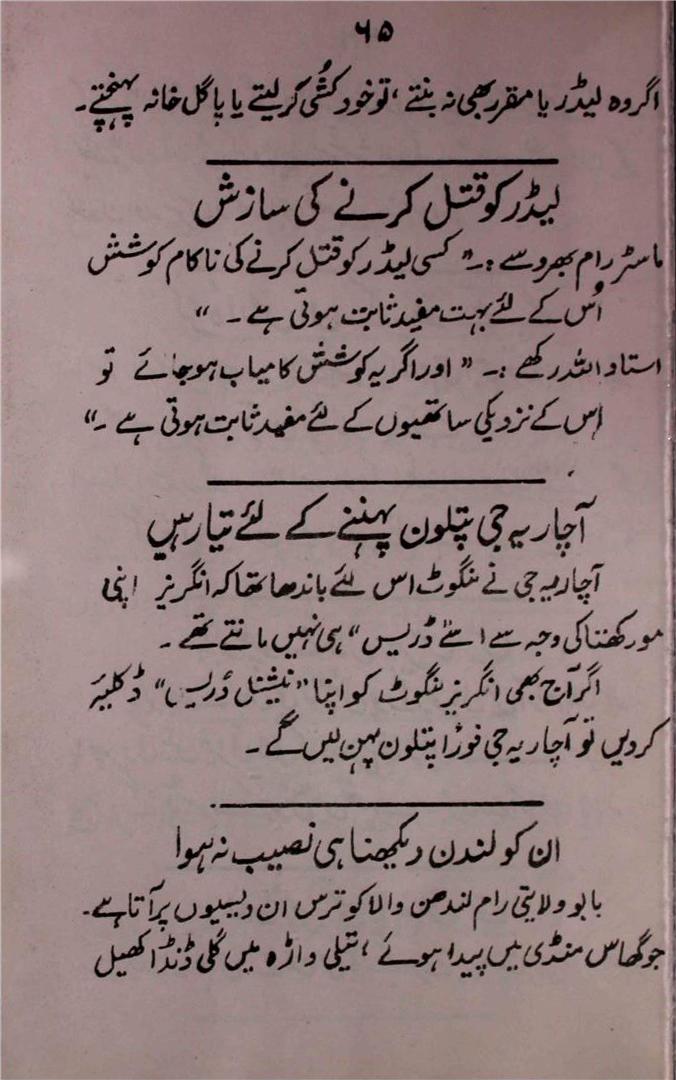 ۶۵
اگر وہ لیڈر یا مقرر بھی نہ بنتے، تو خود کُشی کر لیتے یا پاگل خانہ پہنچتے۔
لیڈر کو قتل کرنے کی سازش
ماسٹر رام بھروسے :۔ ”کسی لیڈر کو قتل کرنے کی ناکام کوشش
اُس کے لئے بہت مفید ثابت ہوتی ہے۔“
استاد اللہ رکھے :۔ ”اور اگر یہ کوشش کامیاب ہو جائے تو
اِس کے نزدیکی ساتھیوں کے لئے مفید ثابت ہوتی ہے۔“
آچاریہ جی پتلون پہننے کے لئے تیار ہیں
آچاریہ جی نے لنگوٹ اس لئے باندھا تھا کہ انگریز اپنی
مورکھتا کی وجہ سے اسے ”ڈریس“ ہی نہیں مانتے تھے۔
اگر آج بھی انگریز لنگوٹ کو اپنا ”نیشنل ڈریس“ ڈکلیئر
کر دیں تو آچاریہ جی فوراً پتلون پہن لیں گے۔
ان کو لندن دیکھنا ہی نصیب نہ ہوا
بابو ولایتی رام لندھن والا کو ترس ان دیسیوں پر آتا ہے۔
جو گھاس منڈی میں پیدا ہوئے، تیلی واڑہ میں گلی ڈنڈا کھیل